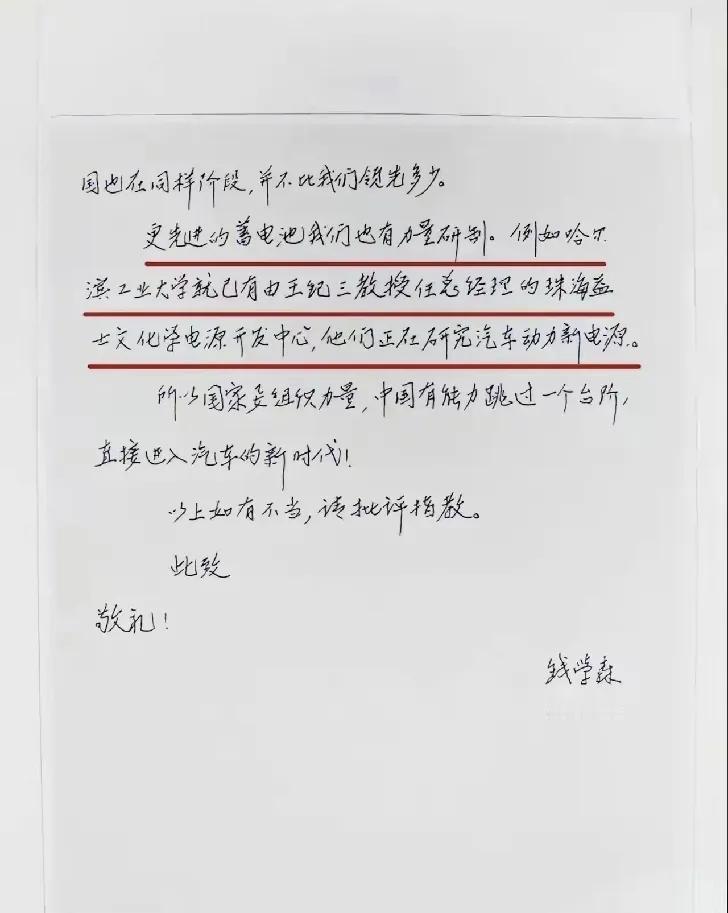 国也在同样阶段,并不比我们领先多少。
更先进的蓄电池我们也有力量研制。例如哈尔
滨工业大学就已有由王纪三教授任总经理的珠海益
士文化学电源开发中心,他们正在研究汽车动力新电源。
所以国家要组织力量,中国有能力跳过一个台阶,
直接进入汽车的新时代!
以上如有不当,请批评指教。
此致
敬礼!
钱学森